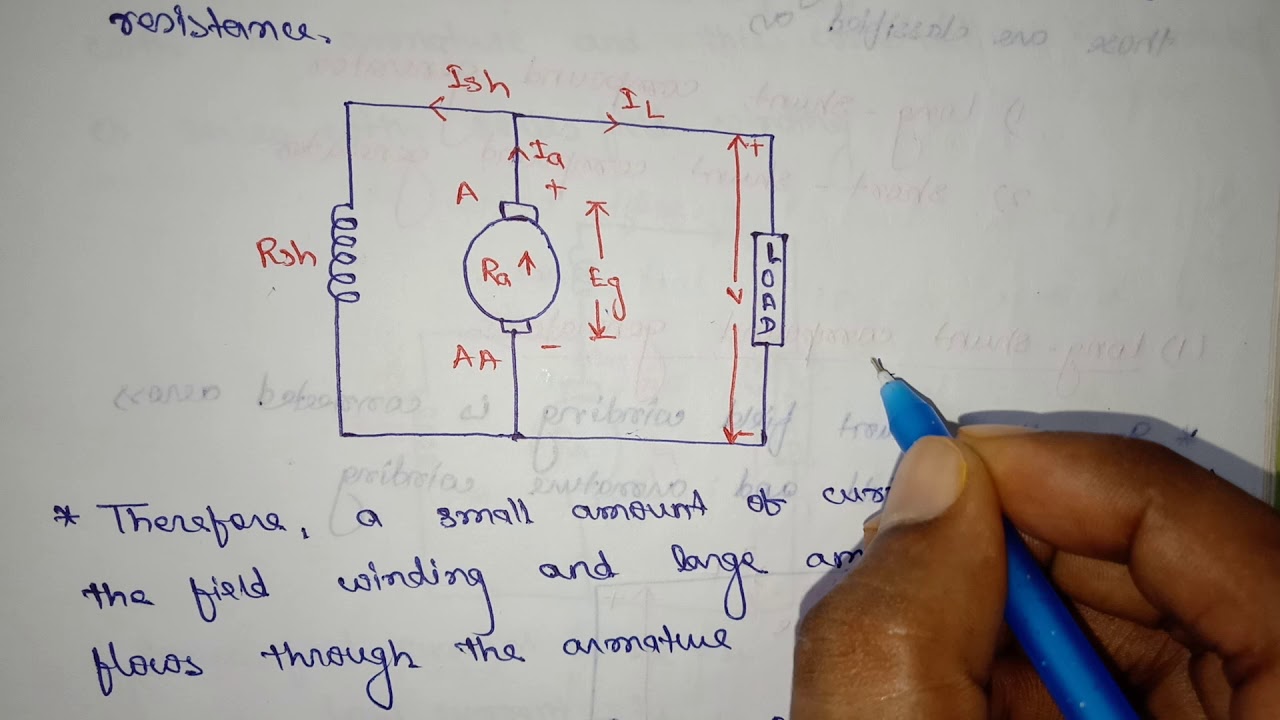 resistance.
Ish
IL
Ia
A
+
+
Rsh
Ra
Eg
V
LOAD
AA
-
-
* Therefore, a small amount of
the field winding and large
flows through the armature